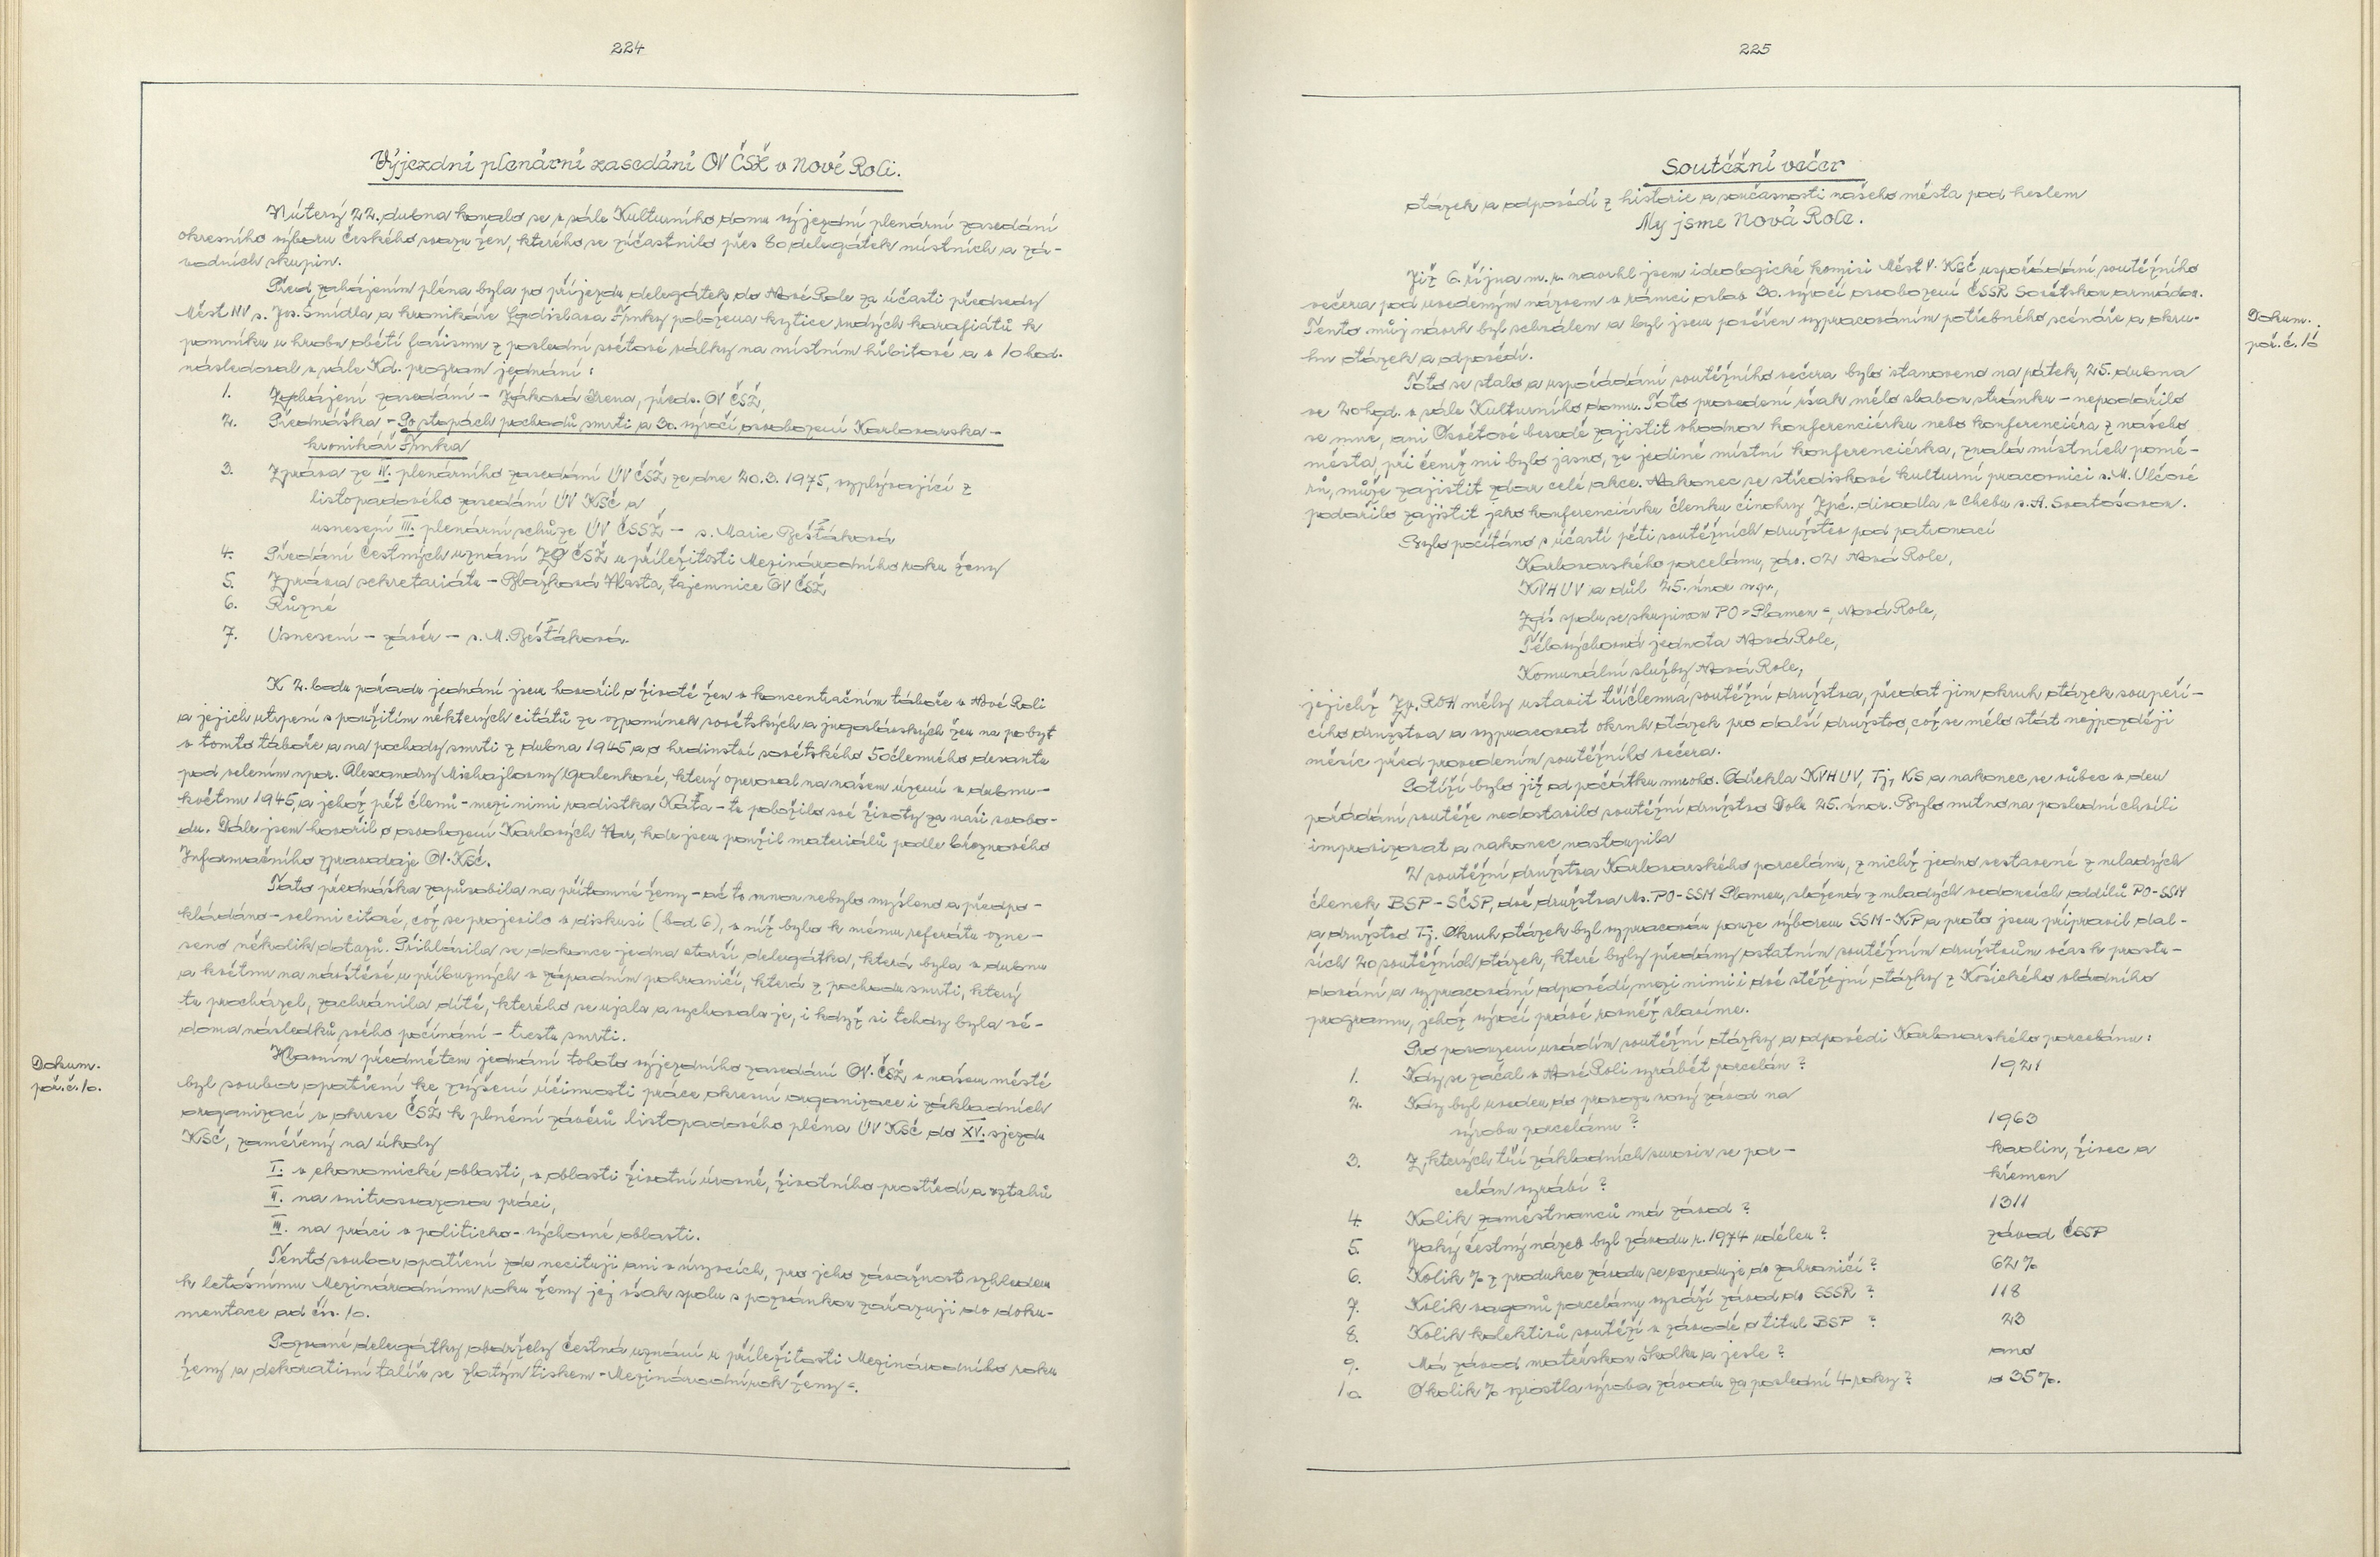 224
Výjezdní plenární zasedání OV ČSŽ v Nové Roli.
V úterý 22. dubna konalo se v sále Kulturního domu výjezdní plenární zasedání
okresního výboru Českého svazu žen, kterého se zúčastnilo přes 80 delegátek místních a zá-
vodních skupin.
Před zahájením pléna byla po příjezdu delegátek do Nové Role za účasti předsedy
Měst NV s. Jos. Šmídla a kronikáře Ladislava Frnky položena kytice rudých karafiátů k
pomníku u hrobu obětí fašismu z poslední světové války na místním hřbitově a v 10 hod.
následoval v sále Kd. program jednání:
1. Zahájení zasedání - Žáková Irena, předs. OV ČSŽ,
2. Přednáška - Po stopách pochodů smrti a 30. výročí osvobození Karlovarska -
kronikář Frnka
3. Zpráva ze IV. plenárního zasedání ÚV ČSŽ ze dne 20.3.1975, vyplývající z
listopadového zasedání ÚV KSČ a
usnesení III. plenární schůze ÚV ČSSŽ - s. Marie Bešťáková
4. Předání Čestných uznání ZO ČSŽ u příležitosti Mezinárodního roku ženy
5. Zpráva sekretariátu - Blažková Vlasta, tajemnice OV ČSŽ
6. Různé
7. Usnesení - závěr - s. M. Bešťáková.
K 2. bodu pořadu jednání jsem hovořil o životě žen v koncentračním táboře v Nové Roli
a jejich utrpení s použitím některých citátů ze vzpomínek sovětských a jugoslávských žen na pobyt
v tomto táboře a na pochody smrti z dubna 1945 a o hrdinství sovětského 5očlenného desantu
pod velením npor. Alexandry Michajlovny Galenkové, který operoval na našem území v dubnu-
květnu 1945, a jehož pět členů - mezi nimi radistka Káťa - tu položilo své životy za naši svobo-
du. Dále jsem hovořil o osvobození Karlových Var, kde jsem použil materiálů podle březnového
Informačního zpravodaje OV. KSČ.
Tato přednáška zapůsobila na přítomné ženy - ač to mnou nebylo myšleno a předpo-
kládáno - velmi citově, což se projevilo v diskusi (bod 6), v níž bylo k mému referátu vzne-
seno několik dotazů. Přihlásila se dokonce jedna starší delegátka, která byla v dubnu
a květnu na návštěvě u příbuzných v západním pohraničí, která z pochodu smrti, který
tu procházel, zachránila dítě, kterého se ujala a vychovala je, i když si tehdy byla vě-
doma následků svého počínání - trestu smrti.
Hlavním předmětem jednání tohoto výjezdního zasedání OV. ČSŽ v našem městě
Dokum.
poř. č. 10.
byl soubor opatření ke zvýšení účinnosti práce okresní organizace i základních
organizací v okrese ČSŽ k plnění závěrů listopadového pléna ÚV KSČ do XV. sjezdu
KSČ, zaměřený na úkoly
I. v ekonomické oblasti, v oblasti životní úrovně, životního prostředí a vztahů
II. na vnitrosvazovou práci,
III. na práci v politicko-výchovné oblasti.
Tento soubor opatření zde necituji ani v úryvcích, pro jeho závažnost vzhledem
k letošnímu Mezinárodnímu roku ženy jej však spolu s pozvánkou zařazuji do doku-
mentace ad čís. 10.
Pozvané delegátky obdržely Čestná uznání u příležitosti Mezinárodního roku
ženy a dekorativní talíře se zlatým tiskem "Mezinárodní rok ženy".
225
Soutěžní večer
otázek a odpovědí z historie a současnosti našeho města pod heslem
My jsme Nová Role.
Již 6. října m. r. navrhl jsem ideologické komisi Měst V. KSČ uspořádání soutěžního
večera pod uvedeným názvem v rámci oslav 30. výročí osvobození ČSSR Sovětskou armádou.
Tento můj návrh byl schválen a byl jsem pověřen vypracováním potřebného scénáře a okru-
Dokum.
poř. č. 16
hu otázek a odpovědí.
Toto se stalo a uspořádání soutěžního večera bylo stanoveno na pátek, 25. dubna
ve 20 hod. v sále Kulturního domu. Toto provedení však mělo slabou stránku - nepodařilo
se mne, ani Osvětové besedě zajistit vhodnou konferenciérku nebo konferenciéra z našeho
města, při čemž mi bylo jasno, že jedině místní konferenciérka, znalá místních pomě-
rů, může zajistit zdar celé akce. Nakonec se střediskové kulturní pracovnici s. M. Vlčové
podařilo zajistit jako konferenciérku členku činohry Zpč. divadla v Chebu s. A. Svatošovou.
Bylo počítáno s účastí pěti soutěžních družstev pod patronací
Karlovarského porcelánu, záv. 02 Nová Role,
KVHUV a důl 25. únor n.p.,
Zdš spolu se skupinou PO "Plamen", Nová Role,
Tělovýchovná jednota Nová Role,
Komunální služby Nová Role,
jejichž Zv. ROH měly ustavit tříčlenná soutěžní družstva, předat jim okruh otázek soupeří-
cího družstva a vypracovat okruh otázek pro další družstvo, což se mělo stát nejpozději
měsíc před provedením soutěžního večera.
Potíží bylo již od počátku mnoho. Odřekla KVHUV, Tj, KS a nakonec se vůbec v den
pořádání soutěže nedostavilo soutěžní družstvo Dole 25. únor. Bylo nutno na poslední chvíli
improvizovat a nakonec nastoupila
2 soutěžní družstva Karlovarského porcelánu, z nichž jedno sestavené z mladých
členek BSP - SČSP, dvě družstva Ms. PO-SSM Plamen, složená z mladých vedoucích oddílů PO-SSM
a družstvo Tj. Okruh otázek byl vypracován pouze výborem SSM-KP a proto jsem připravil dal-
ších 20 soutěžních otázek, které byly předány ostatním soutěžním družstvům včas k prostu-
dování a vypracování odpovědí, mezi nimi i dvě stěžejní otázky z Košického vládního
programu, jehož výročí právě rovněž slavíme.
Pro posouzení uvádím soutěžní otázky a odpovědi Karlovarského porcelánu:
1. Kdy se začal v Nové Roli vyrábět porcelán? 1921
2. Kdy byl uveden do provozu nový závod na
výrobu porcelánu? 1963
3. Z kterých tří základních surovin se por- kaolin, živec a
celán vyrábí? křemen
4. Kolik zaměstnanců má závod? 1311
5. Jaký čestný název byl závodu r. 1974 udělen? závod ČSSP
6. Kolik % z produkce závodu se expeduje do zahraničí? 62%
7. Kolik vagonů porcelánu vyváží závod do SSSR? 118
8. Kolik kolektivů soutěží v závodě o titul BSP? 23
9. Má závod mateřskou školku a jesle? ano
10. O kolik % vzrostla výroba závodu za poslední 4 roky? o 35%.